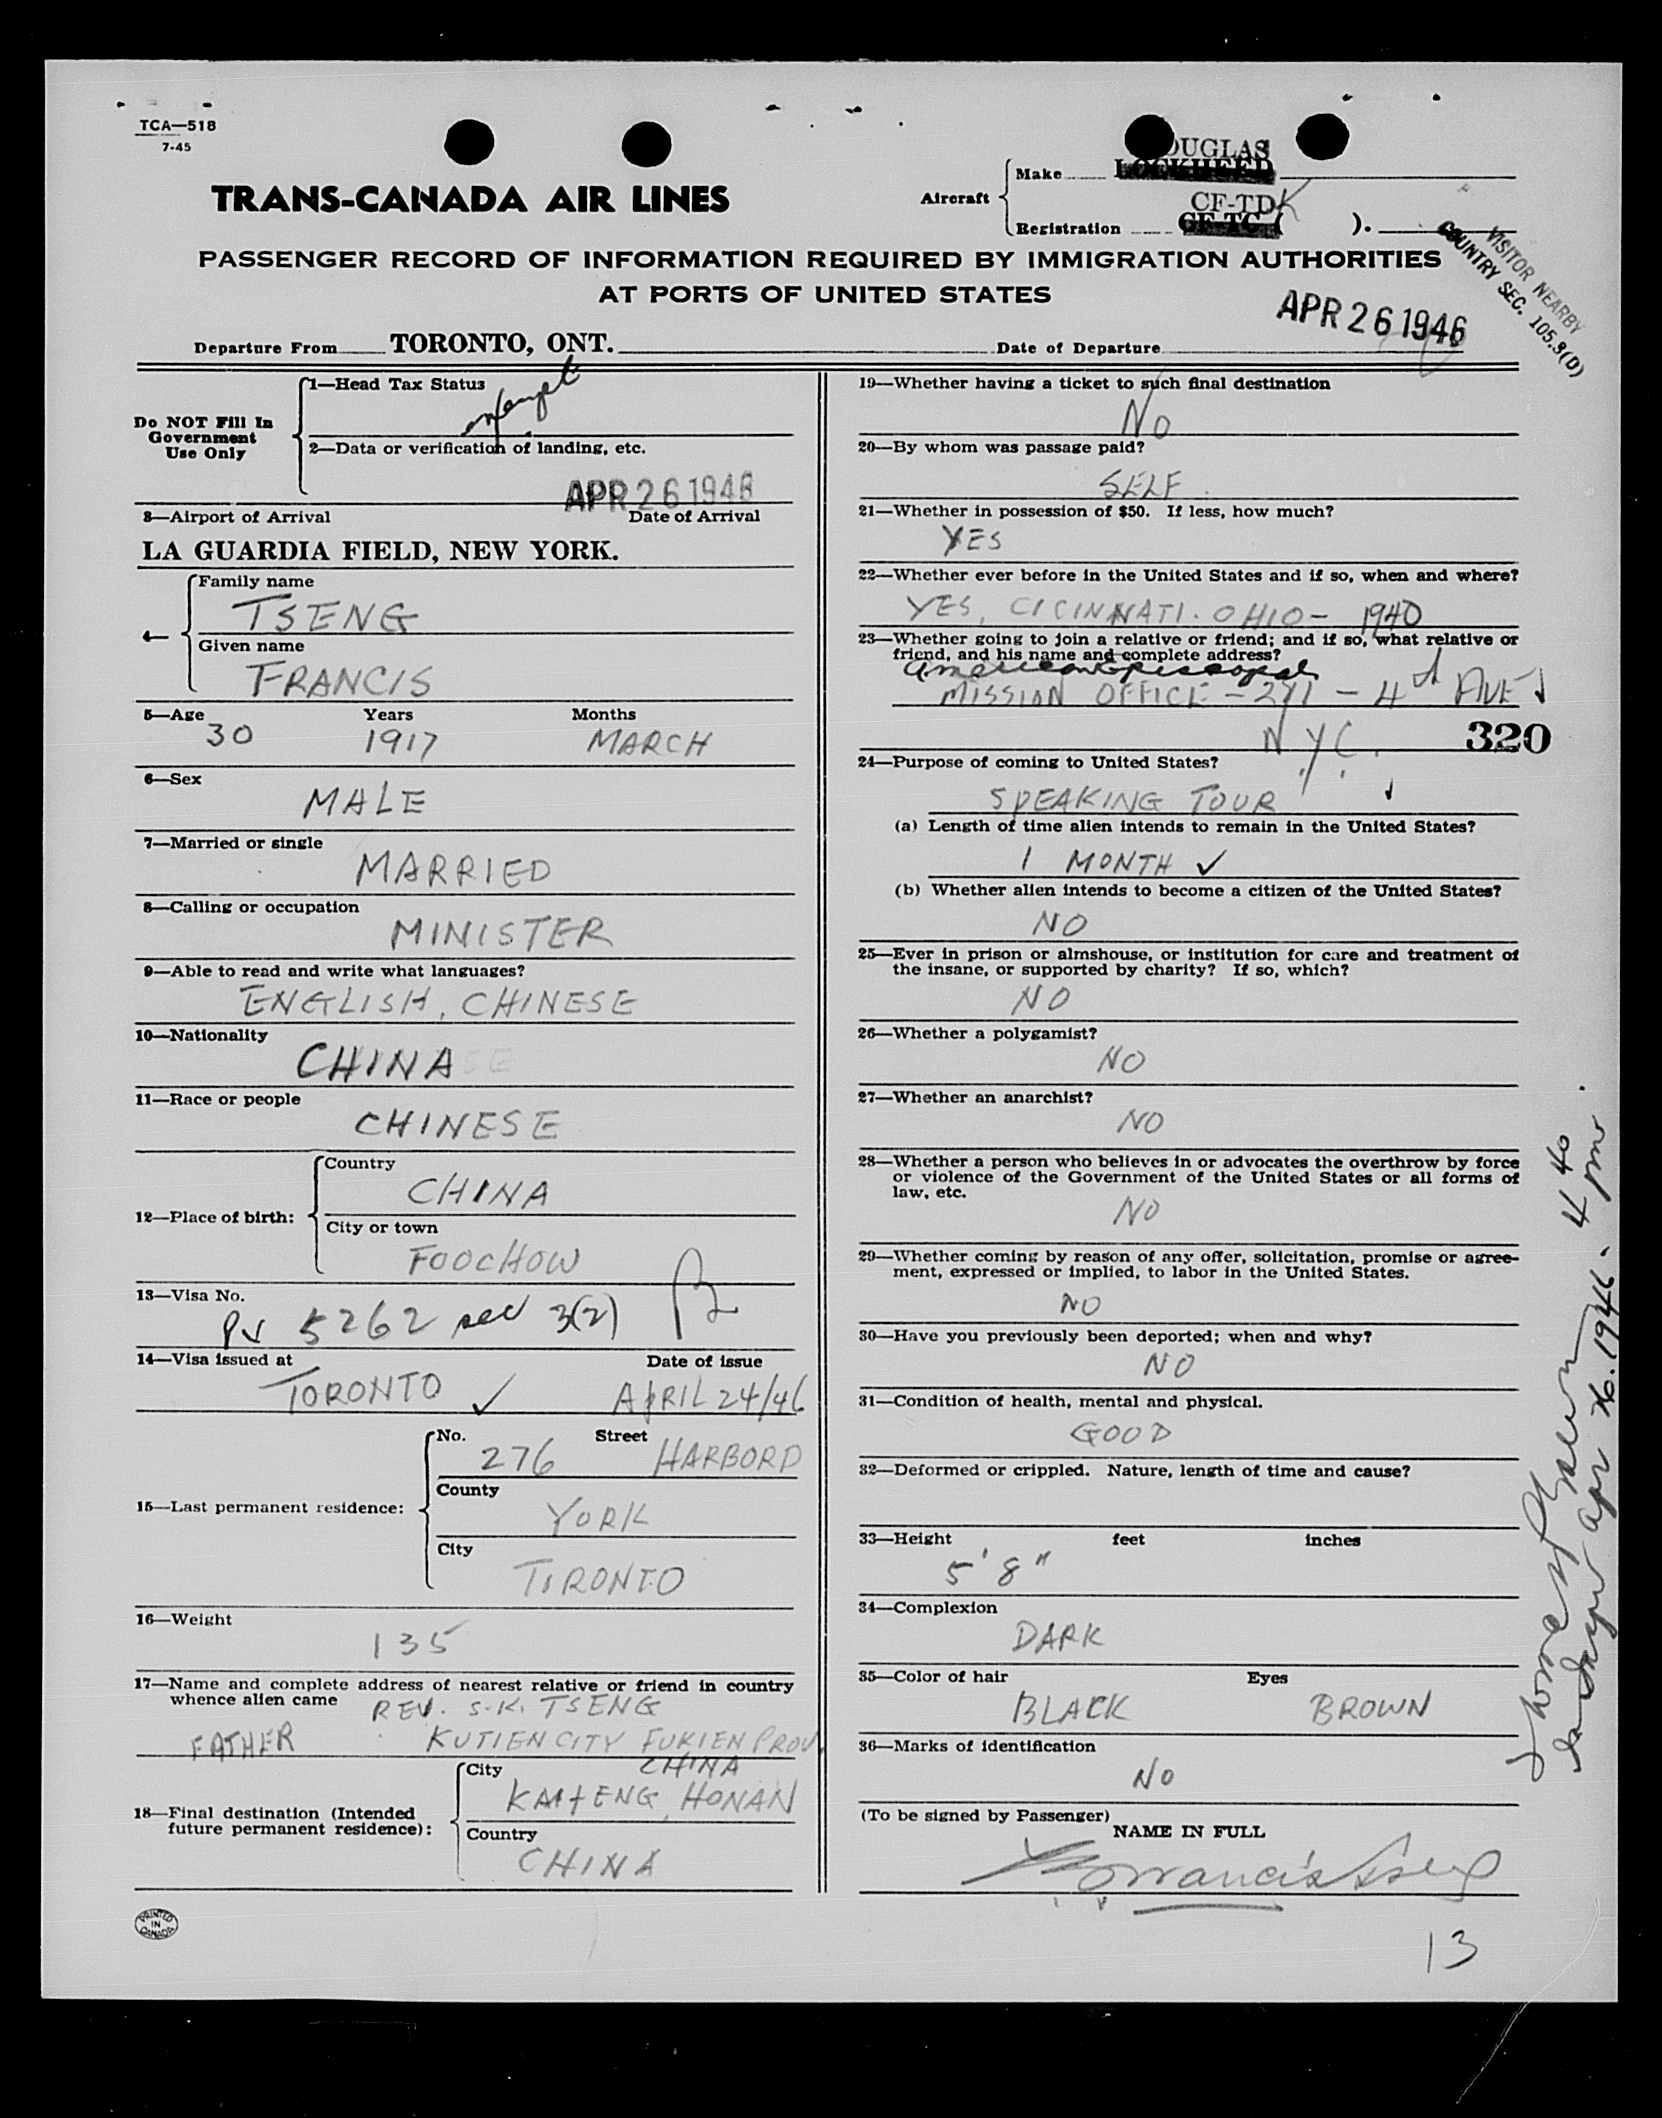 TCA—518
7-45
TRANS-CANADA AIR LINES
Aircraft
Make
DOUGLAS
LOCKHEED
Registration
CF-TDK
CF-TC ( ).
PASSENGER RECORD OF INFORMATION REQUIRED BY IMMIGRATION AUTHORITIES
AT PORTS OF UNITED STATES
VISITOR NEARBY
COUNTRY SEC. 105.3(D)
Departure From TORONTO, ONT.
Date of Departure APR 26 1946
Do NOT Fill In
Government
Use Only
1—Head Tax Status
exempt
2—Data or verification of landing, etc.
APR 26 1946
3—Airport of Arrival Date of Arrival
LA GUARDIA FIELD, NEW YORK.
4—
Family name
TSENG
Given name
FRANCIS
5—Age Years Months
30 1917 MARCH
6—Sex
MALE
7—Married or single
MARRIED
8—Calling or occupation
MINISTER
9—Able to read and write what languages?
ENGLISH, CHINESE
10—Nationality
CHINA
11—Race or people
CHINESE
12—Place of birth:
Country
CHINA
City or town
FOOCHOW
13—Visa No.
PV 5262 sec 3(2)
14—Visa issued at Date of issue
TORONTO ✓ APRIL 24/46
15—Last permanent residence:
No. Street
276 HARBORD
County
YORK
City
TORONTO
16—Weight
135
17—Name and complete address of nearest relative or friend in country
whence alien came REV. S.K. TSENG
FATHER KUTIEN CITY FUKIEN PROV.
CHINA
18—Final destination (Intended
future permanent residence):
City
KAIFENG, HONAN
Country
CHINA
PRINTED
IN
CANADA
19—Whether having a ticket to such final destination
NO
20—By whom was passage paid?
SELF
21—Whether in possession of $50. If less, how much?
YES
22—Whether ever before in the United States and if so, when and where?
YES, CICINNATI. OHIO – 1940
23—Whether going to join a relative or friend; and if so, what relative or
friend, and his name and complete address?
American Episcopal
MISSION OFFICE – 281 – 4th AVE
N.Y.C.
320
24—Purpose of coming to United States?
SPEAKING TOUR
(a) Length of time alien intends to remain in the United States?
1 MONTH ✓
(b) Whether alien intends to become a citizen of the United States?
NO
25—Ever in prison or almshouse, or institution for care and treatment of
the insane, or supported by charity? If so, which?
NO
26—Whether a polygamist?
NO
27—Whether an anarchist?
NO
28—Whether a person who believes in or advocates the overthrow by force
or violence of the Government of the United States or all forms of
law, etc.
NO
29—Whether coming by reason of any offer, solicitation, promise or agree-
ment, expressed or implied, to labor in the United States.
NO
30—Have you previously been deported; when and why?
NO
31—Condition of health, mental and physical.
GOOD
32—Deformed or crippled. Nature, length of time and cause?
33—Height feet inches
5' 8"
34—Complexion
DARK
35—Color of hair Eyes
BLACK BROWN
36—Marks of identification
NO
(To be signed by Passenger)
NAME IN FULL
Francis Tseng
13
Apr 26. 1946. 4 40 pm